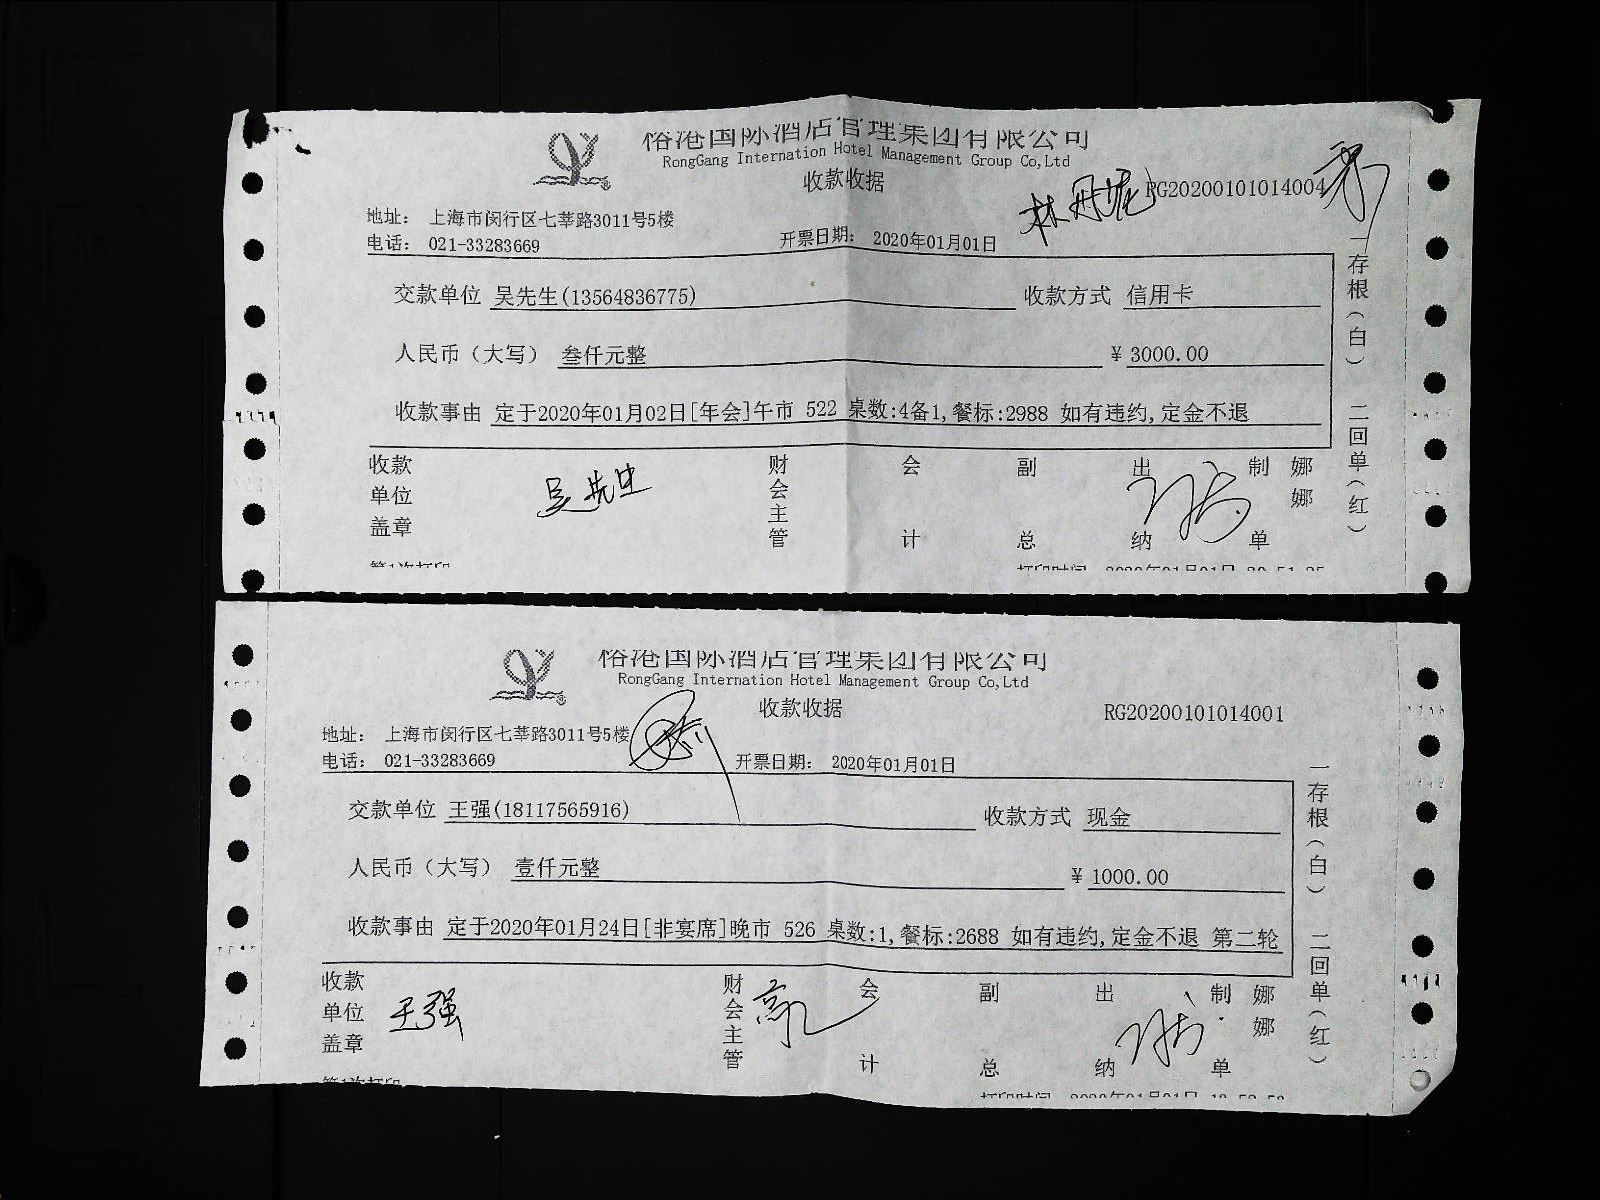 裕港国际酒店管理集团有限公司
RongGang Internation Hotel Management Group Co,Ltd
收款收据
RG20200101014004
地址： 上海市闵行区七莘路3011号5楼
电话： 021-33283669
开票日期： 2020年01月01日
交款单位 吴先生(13564836775) 收款方式 信用卡
人民币（大写） 叁仟元整 ￥ 3000.00
收款事由 定于2020年01月02日[年会]午市 522 桌数:4备1,餐标:2988 如有违约,定金不退
收款单位盖章 吴先生 财会主管 会计 副总 出纳 制单 娜娜
一存根（白） 二回单（红）
第1次打印 打印时间 2020年01月01日
裕港国际酒店管理集团有限公司
RongGang Internation Hotel Management Group Co,Ltd
收款收据
RG20200101014001
地址： 上海市闵行区七莘路3011号5楼
电话： 021-33283669
开票日期： 2020年01月01日
交款单位 王强(18117565916) 收款方式 现金
人民币（大写） 壹仟元整 ￥ 1000.00
收款事由 定于2020年01月24日[非宴席]晚市 526 桌数:1,餐标:2688 如有违约,定金不退 第二轮
收款单位盖章 王强 财会主管 会计 副总 出纳 制单 娜娜
一存根（白） 二回单（红）
第1次打印 打印时间 2020年01月01日